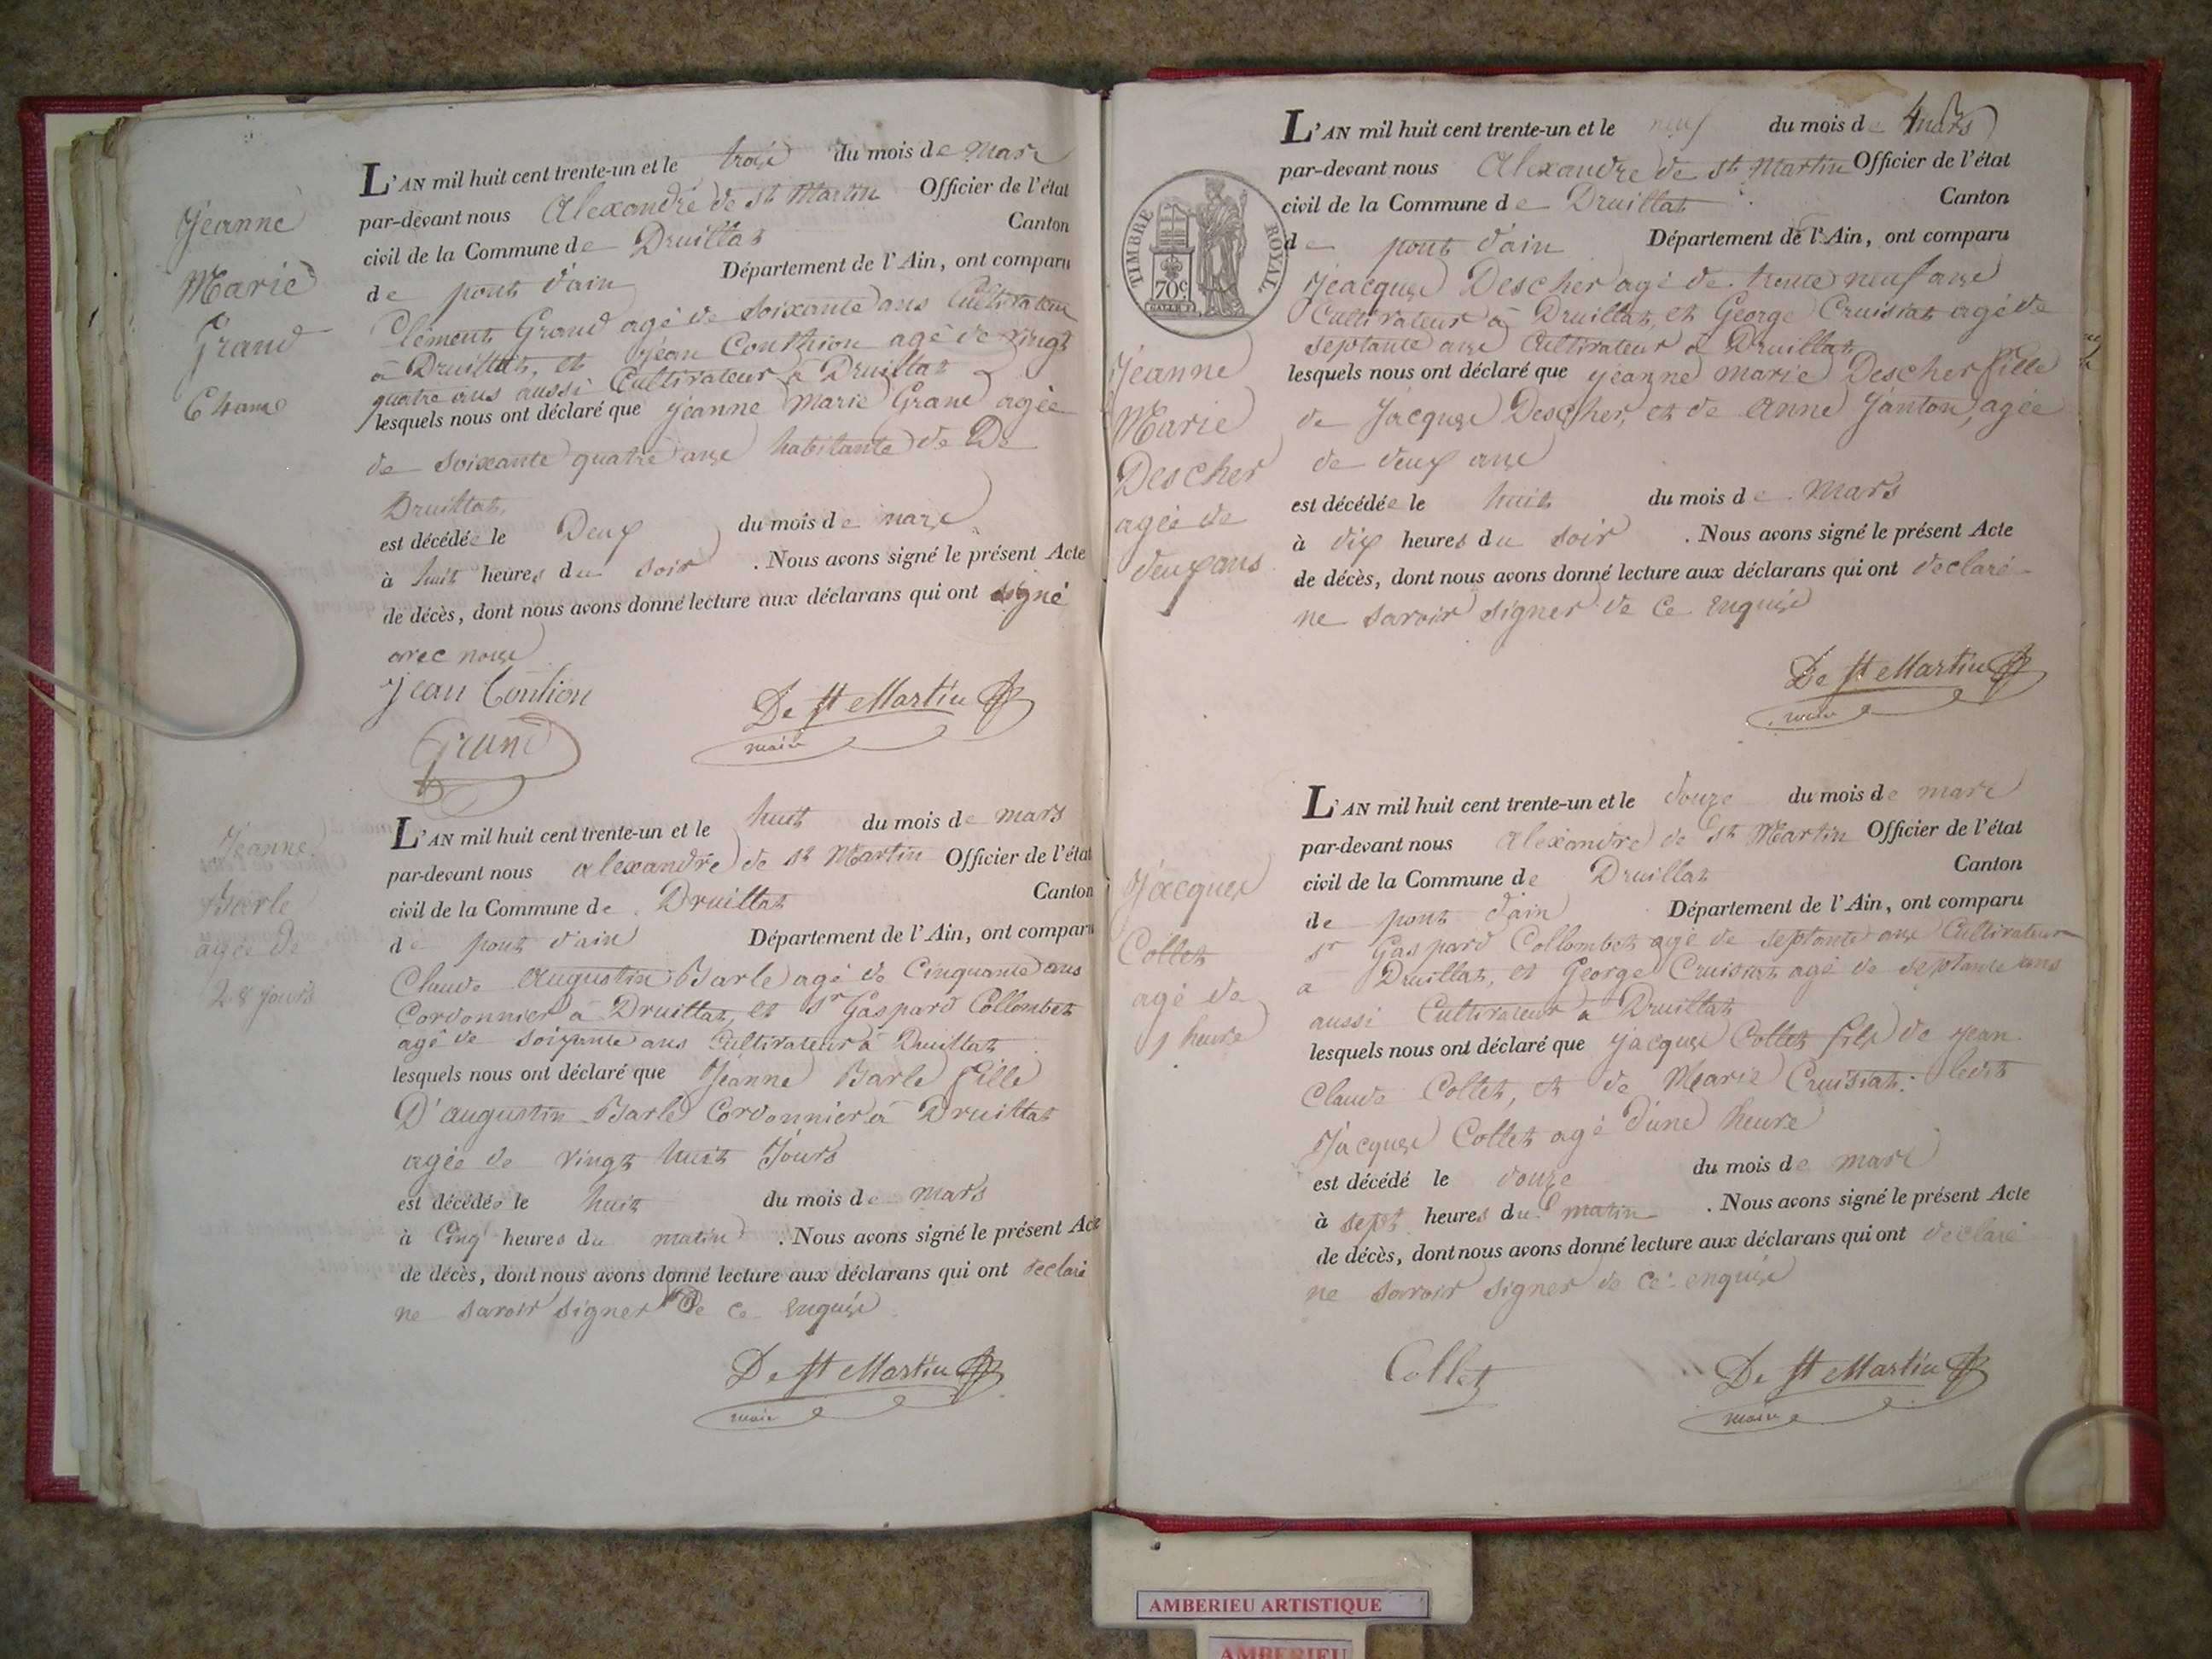 Jeanne
Marie
Grand
64 ans
L'AN mil huit cent trente-un et le trois du mois de mars
par-devant nous Alexandre de St Martin Officier de l'état
civil de la Commune de Druillat Canton
de pont d'ain Département de l'Ain, ont comparu
Clément Grand agé de soixante ans Cultivateur
à Druillat, et Jean Conthion agé de vingt
quatre ans aussi Cultivateur à Druillat
lesquels nous ont déclaré que Jeanne Marie Grand agée
de soixante quatre ans habitante de De
Druillat,
est décédée le Deux du mois de mars
à huit heures du soir . Nous avons signé le présent Acte
de décès, dont nous avons donné lecture aux déclarans qui ont signé
avec nous
Jean Contion
De St Martin
maire
Grand
Jeanne
Barle
agée de
28 jours
L'AN mil huit cent trente-un et le huit du mois de mars
par-devant nous alexandre de St Martin Officier de l'état
civil de la Commune de Druillat Canton
de pont d'ain Département de l'Ain, ont comparu
Claude Augustin Barle agé de Cinquante ans
Cordonnier à Druillat, et Sr Gaspard Collombet
agé de soixante ans Cultivateur à Druillat
lesquels nous ont déclaré que Jeanne Barle fille
D'augustin Barle Cordonnier à Druillat
agée de vingt huit Jours
est décédée le huit du mois de mars
à Cinq heures du matin . Nous avons signé le présent Acte
de décès, dont nous avons donné lecture aux déclarans qui ont declaré
ne savoir signer de ce enquis
De St Martin
maire
TIMBRE ROYAL
70c.
Jeanne
Marie
Descher
agée de
deux ans
L'AN mil huit cent trente-un et le neuf du mois de mars
par-devant nous Alexandre de St Martin Officier de l'état
civil de la Commune de Druillat Canton
de pont d'ain Département de l'Ain, ont comparu
Jeacques Descher agé de trente neuf ans
Cultivateur à Druillat, et George Cruisiat agé de
septante ans Cultivateur à Druillat
lesquels nous ont déclaré que jeanne marie Descher fille
de Jacques Descher, et de Anne Janton, agée
de deux ans
est décédée le huit du mois de Mars
à dix heures du soir . Nous avons signé le présent Acte
de décès, dont nous avons donné lecture aux déclarans qui ont declaré
ne savoir signer de ce enquis
De St Martin
maire
Jacques
Collet
agé de
1 heure
L'AN mil huit cent trente-un et le douze du mois de mars
par-devant nous alexandre de St Martin Officier de l'état
civil de la Commune de Druillat Canton
de pont d'ain Département de l'Ain, ont comparu
sr Gaspard Collombet agé de septante ans Cultivateur
a Druillat, et George Cruisiat agé de septante ans
aussi Cultivateur à Druillat
lesquels nous ont déclaré que jacques Collet fils de jean
Claude Collet, et de Marie Cruisiat: ledit
Jacques Collet agé d'une heure
est décédé le douze du mois de mars
à sept heures du matin . Nous avons signé le présent Acte
de décès, dont nous avons donné lecture aux déclarans qui ont declaré
ne savoir signer de ce enquis
Collet
De St Martin
maire
AMBERIEU ARTISTIQUE
AMBERIEU